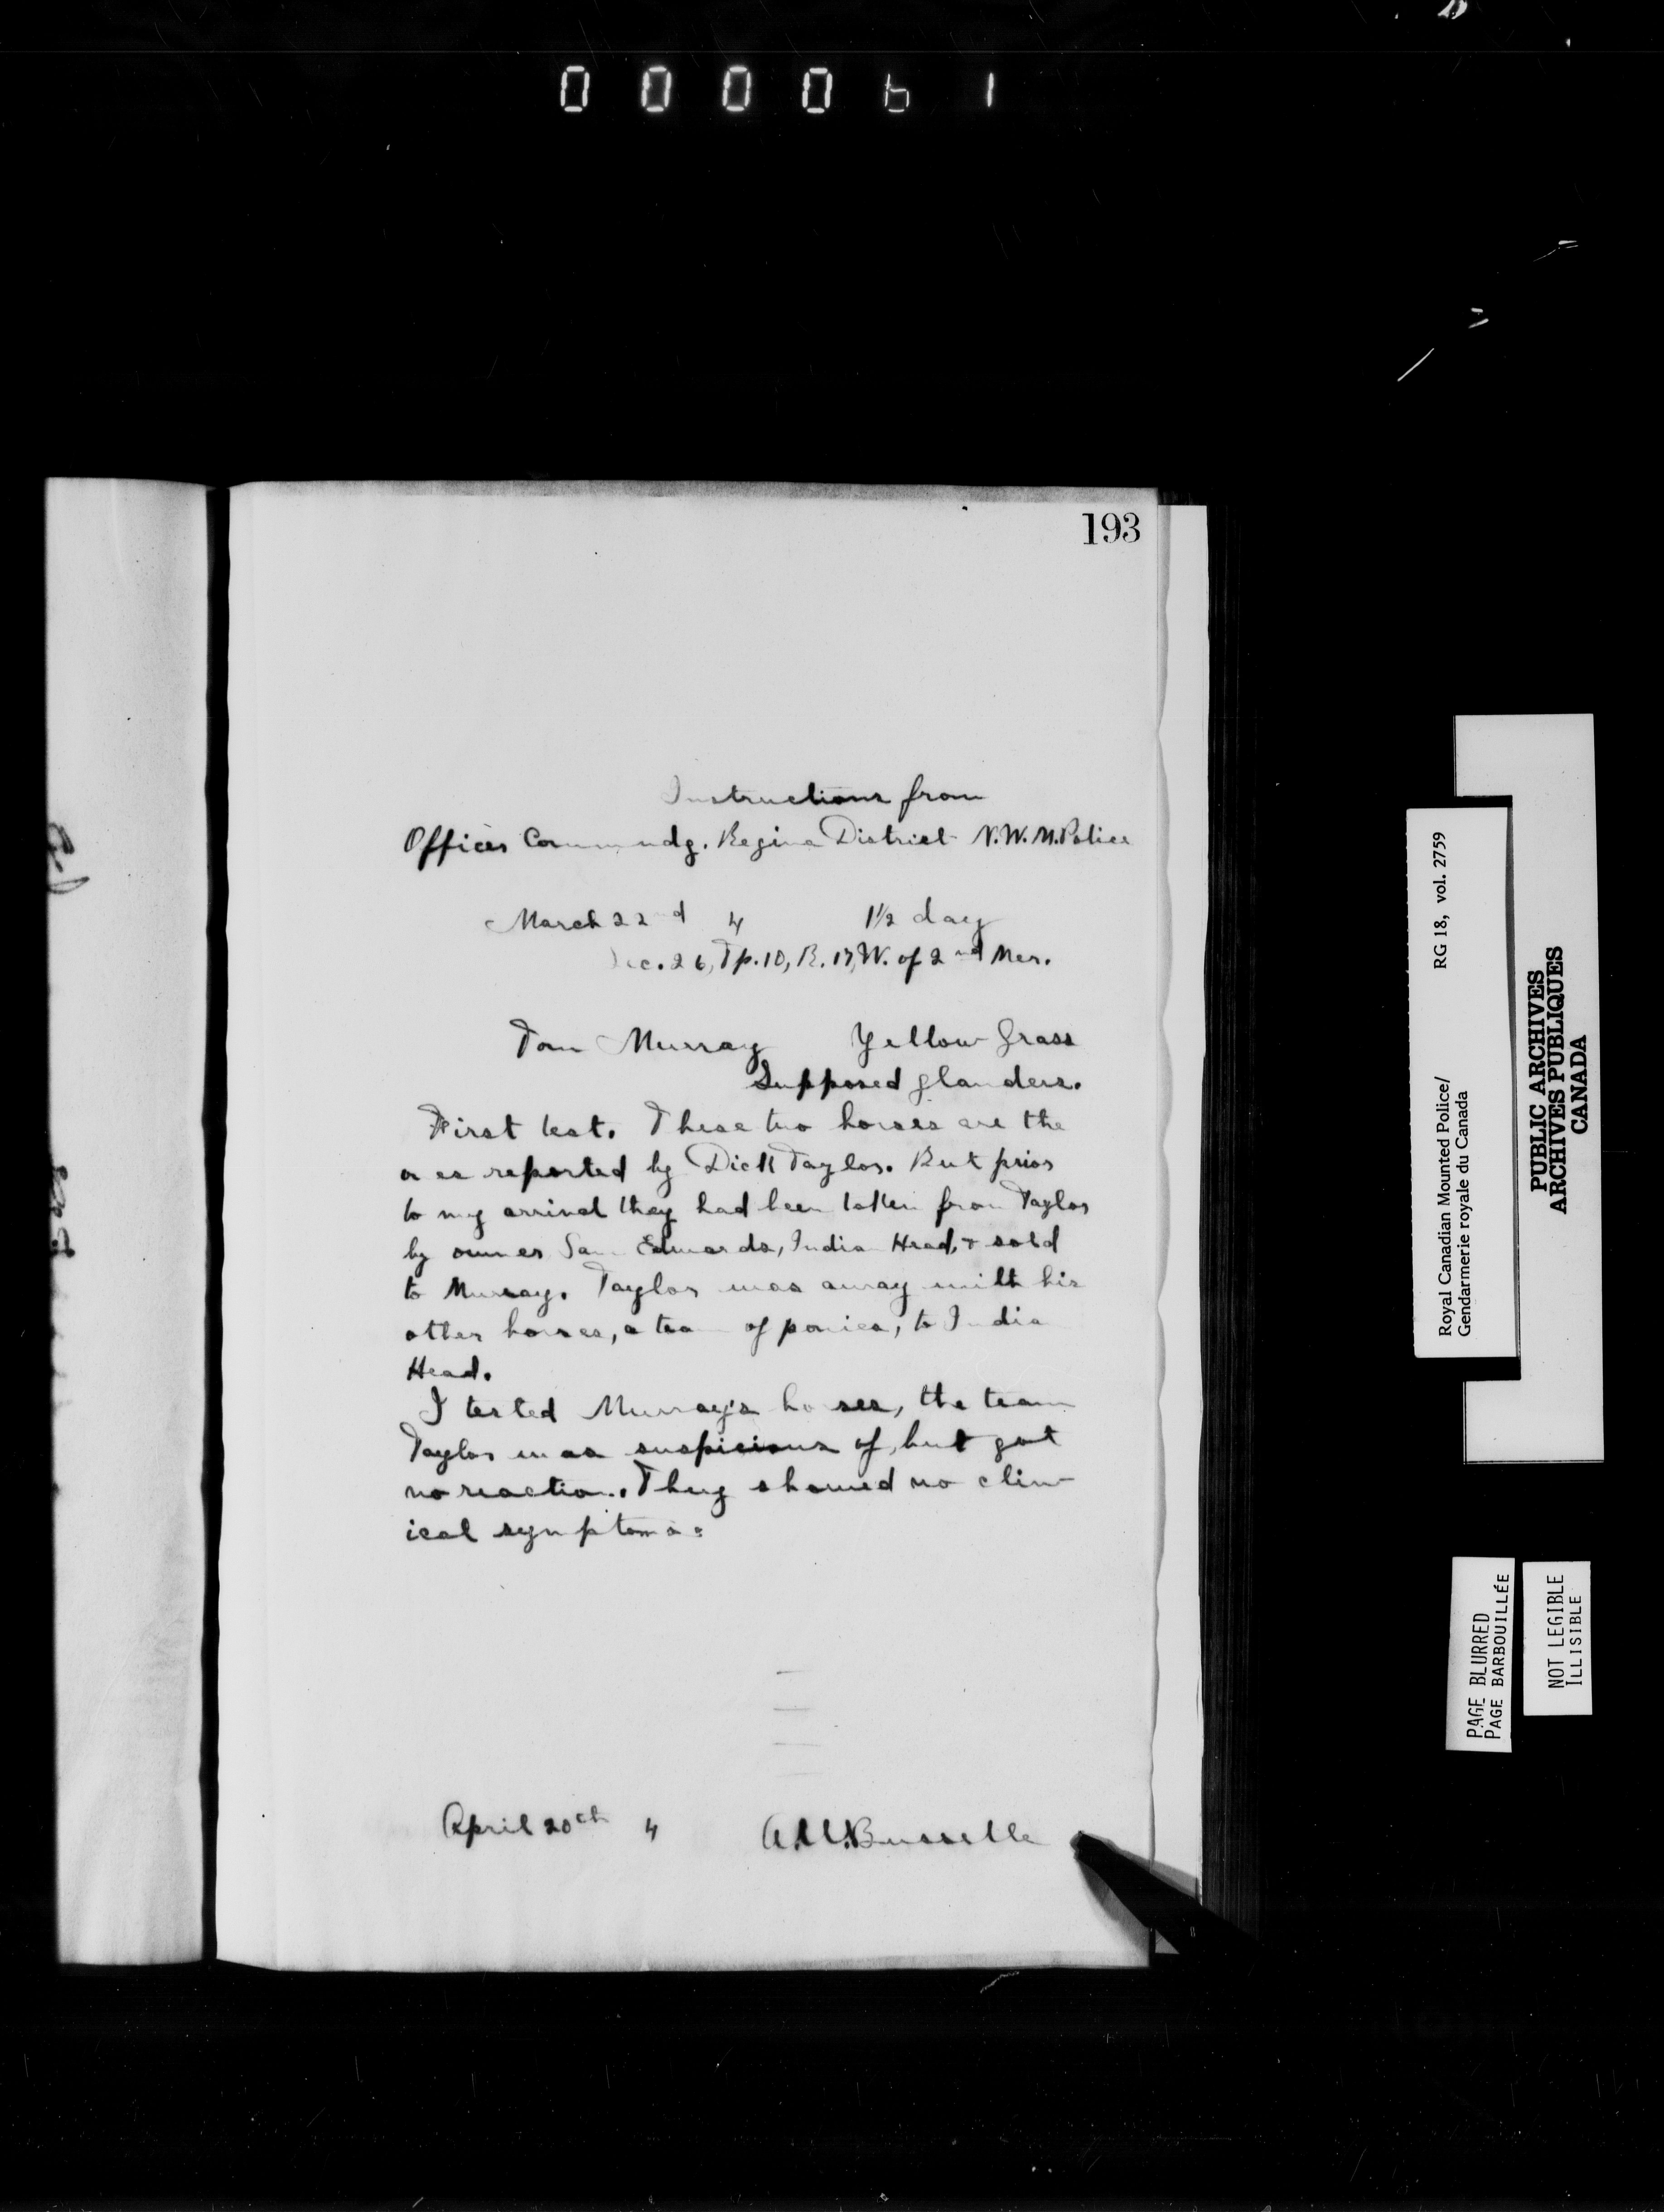 000061
193
Instructions from
Officer Commndg. Regina District N.W.M.Police
March 22nd 4 1½ day
Sec. 26, Tp. 10, R. 17, W. of 2nd Mer.
Tom Murray Yellow Grass
Supposed glanders.
First test. These two horses are the
ones reported by Dick Taylor. But prior
to my arrival they had been taken from Taylor
by owner Sam Edwards, Indian Head, & sold
to Murray. Taylor was away with his
other horses, a team of ponies, to Indian
Head.
I tested Murray's horses, the team
Taylor was suspicious of, but got
no reaction. They showed no clin-
ical symptoms.
April 20th 4
Royal Canadian Mounted Police/ RG 18, vol. 2759
Gendarmerie royale du Canada
PUBLIC ARCHIVES
ARCHIVES PUBLIQUES
CANADA
PAGE BLURRED
PAGE BARBOUILLÉE
NOT LEGIBLE
ILLISIBLE